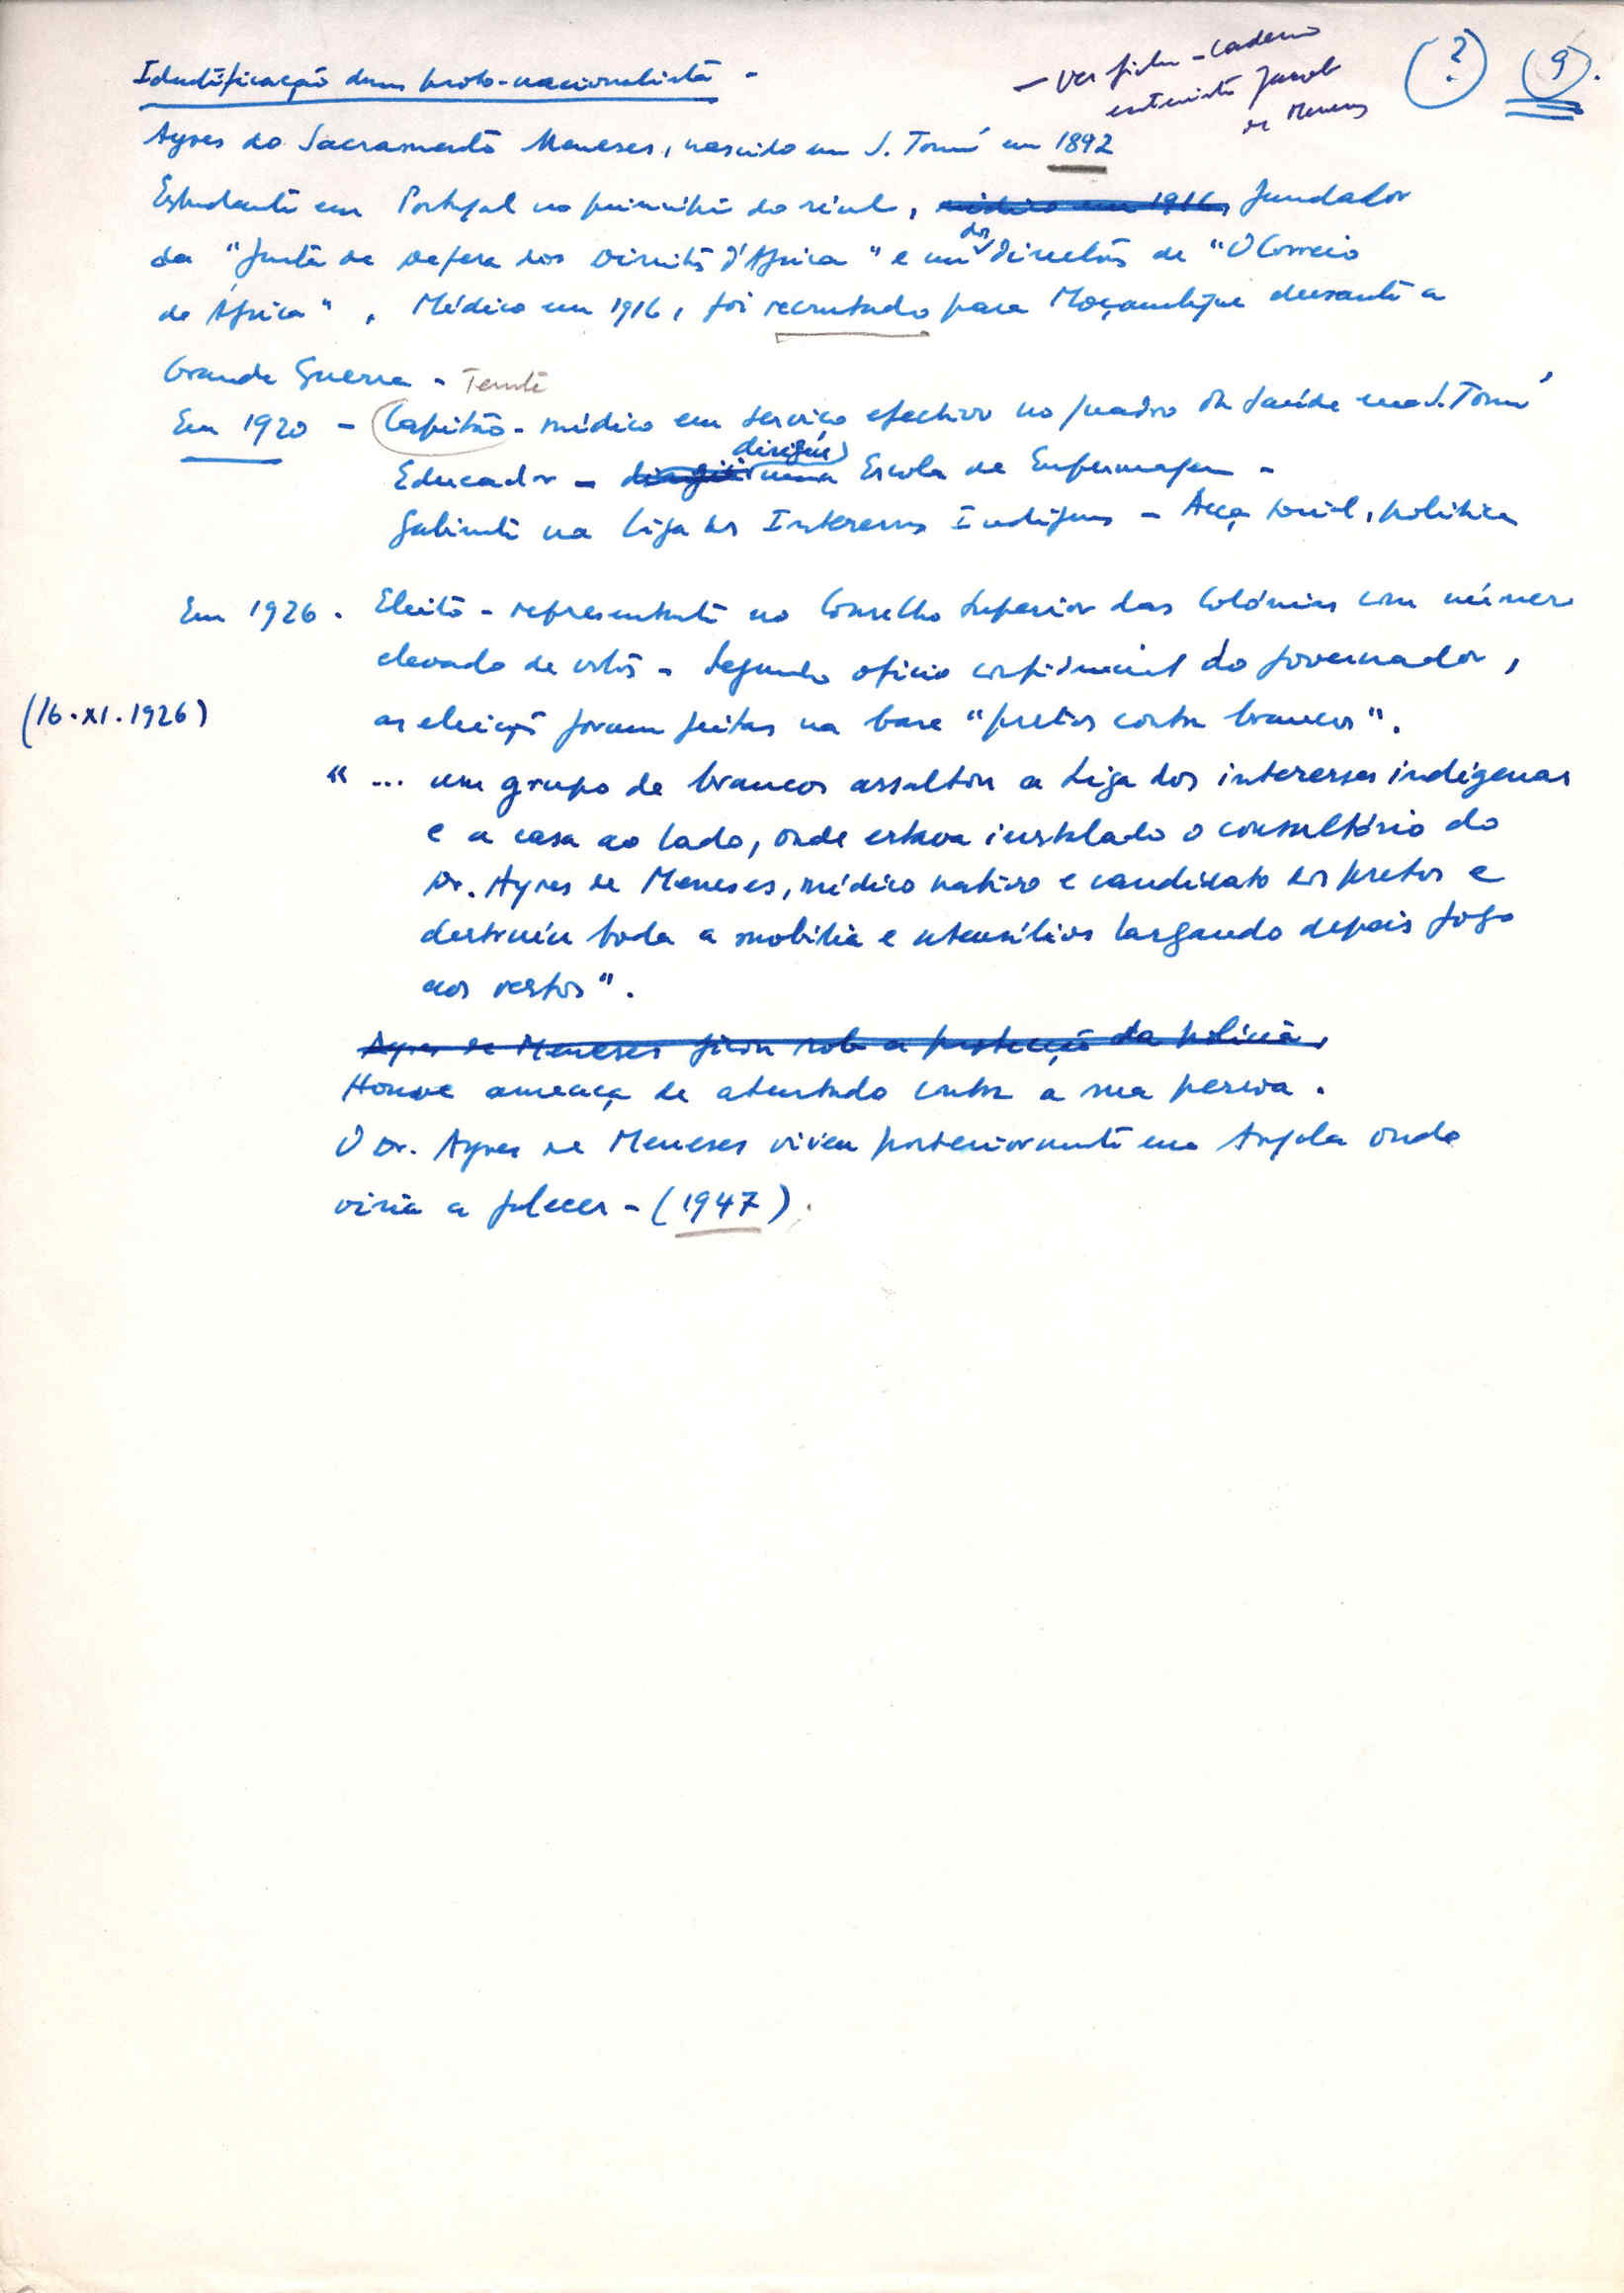 Identificação dum proto-nacionalista -
- Ver ficha - Caderno
entrevista Jacob
de Meneses
(?) (9).
Ayres do Sacramento Meneses, nascido em S. Tomé em 1892
Estudante em Portugal no princípio do século, médico em 1916, fundador
da "Junta de Defesa dos Direitos d'África" e um dos directores de "O Correio
de África", Médico em 1916, foi recrutado para Moçambique durante a
Grande Guerra - Tenente
Em 1920 - Capitão-médico em serviço efectivo no quadro de saúde em S. Tomé
Educador - dirigiu uma dirigiu Escola de Enfermagem -
Gabinete na Liga dos Interesses Indígenas - Acção social, política
Em 1926. Eleito - representante no Conselho Superior das Colónias com número
elevado de votos - Segundo ofício confidencial do governador,
(16.XI.1926) as eleições foram feitas na base "pretos contra brancos".
"... um grupo de brancos assaltou a Liga dos interesses indígenas
e a casa ao lado, onde estava instalado o consultório do
Dr. Ayres de Meneses, médico nativo e candidato dos pretos e
destruiu toda a mobília e utensílios largando depois fogo
aos restos".
Ayres de Meneses ficou sob a protecção da polícia,
Houve ameaça de atentado contra a sua pessoa.
O Dr. Ayres de Meneses viveu posteriormente em Angola onde
viria a falecer - (1947).